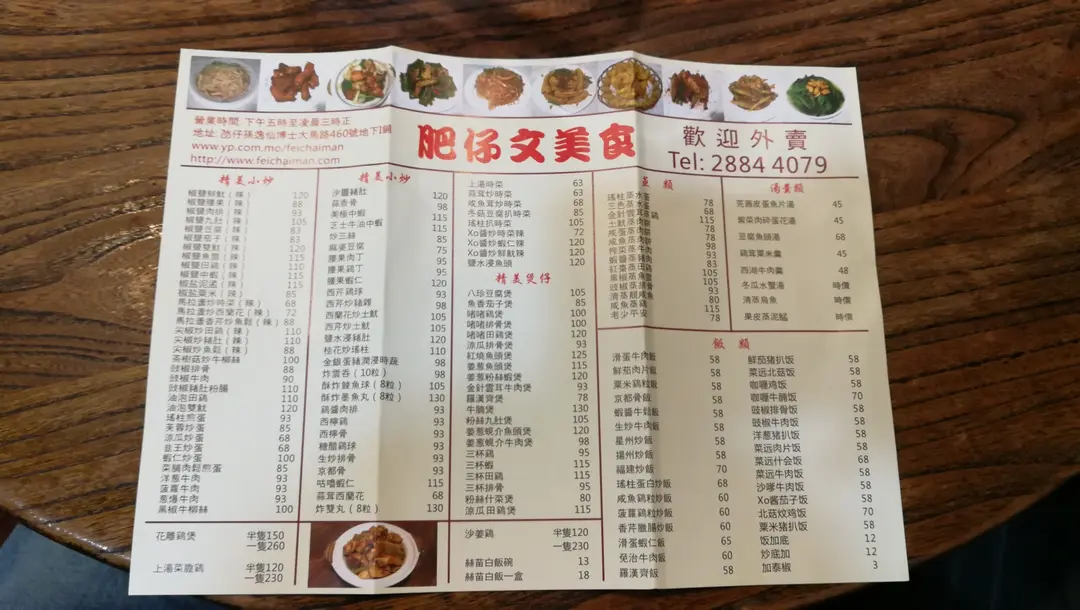 營業時間: 下午五時至凌晨三時正
地址: 氹仔孫逸仙博士大馬路460號地下I鋪
www.yp.com.mo/feichaiman
http://www.feichaiman.com
肥仔文美食
歡迎外賣
Tel: 2884 4079
精美小炒
椒鹽鮮魷（辣） 120
椒鹽腰果（辣） 98
椒鹽肉排（辣） 93
椒鹽九肚（辣） 105
椒鹽豆腐（辣） 83
椒鹽茄子（辣） 83
椒鹽雙魷（辣） 120
椒鹽魚雲（辣） 115
椒鹽田鷄（辣） 110
椒鹽中蝦（辣） 115
椒盐泥孟（辣） 115
椒盐粟米（辣） 85
馬拉盞炒時菜（辣） 68
馬拉盞炒西蘭花（辣） 72
馬拉盞香芹炒魚鬆（辣） 88
尖椒炒田鷄（辣） 110
尖椒炒豬肚（辣） 110
尖椒炒魚鬆（辣） 88
茶樹菇炒牛柳絲 100
豉椒排骨 88
豉椒牛肉 90
豉椒豬肚粉腸 110
油泡田鷄 110
油泡雙魷 120
瑤柱煎蛋 93
芙蓉炒蛋 85
涼瓜炒蛋 68
韭王炒蛋 68
蝦仁炒蛋 100
菜脯肉鬆煎蛋 85
洋葱牛肉 93
菠蘿牛肉 93
葱爆牛肉 93
黑椒牛柳絲 100
精美小炒
沙薑豬肚 120
蒜香骨 98
美極中蝦 115
芝士牛油中蝦 115
炒三絲 85
麻婆豆腐 75
腰果肉丁 95
腰果鷄丁 95
腰果蝦仁 120
西芹鷄球 93
西芹炒豬雜 98
西蘭花炒土魷 115
西芹炒土魷 115
鹽水浸豬肚 120
桂花炒瑤柱 110
金銀蛋豬潤浸時蔬 98
炸雲吞（10粒） 98
酥炸鯪魚球（8粒） 105
酥炸墨魚丸（8粒） 130
鷄醬肉排 93
西檸鷄 93
西檸骨 93
糖醋鷄球 93
生炒排骨 93
京都骨 93
咕嚕蝦仁 115
蒜茸西蘭花 68
炸雙丸（8粒） 130
上湯時菜 63
蒜茸炒時菜 63
咸魚茸炒時菜 68
冬菇豆腐扒時菜 85
瑤柱扒時菜 105
Xo醬炒時菜辣 72
Xo醬炒蝦仁辣 120
Xo醬炒鮮魷辣 120
鹽水浸魚頭 120
精美煲仔
八珍豆腐煲 105
魚香茄子煲 85
啫啫鷄煲 100
啫啫排骨煲 100
啫啫田鷄煲 120
涼瓜排骨煲 93
紅燒魚頭煲 125
姜葱魚頭煲 115
姜葱粉絲蝦煲 120
金針雲耳牛肉煲 93
羅漢齊煲 78
牛腩煲 130
粉絲九肚煲 105
姜葱蜆介魚頭煲 120
姜葱蜆介牛肉煲 98
三杯鷄 95
三杯蝦 115
三杯田鷄 115
三杯排骨 95
粉絲什菜煲 80
涼瓜田鷄煲 115
蒸類
瑤柱蒸水蛋 78
三色蒸水蛋 68
金針雲耳蒸鷄 115
土魷蒸肉餅 78
咸蛋蒸肉餅 78
咸魚蒸肉餅 78
榨菜蒸牛肉 98
蝦醬蒸豬肉 93
紅棗蒸田鷄 83
豉椒蒸排骨 93
咸魚蒸鷄 115
老少平安 78
湯羹類
芫茜皮蛋魚片湯 45
紫菜肉碎蛋花湯 45
豆腐魚頭湯 68
鷄茸粟米羹 45
西湖牛肉羹 48
冬瓜水蟹湯 時價
清蒸烏魚 時價
果皮蒸泥鯭 時價
飯類
滑蛋牛肉飯 58
鮮茄肉片飯 58
粟米鷄粒飯 58
京都骨飯 58
蝦醬牛鬆飯 58
生炒牛肉飯 58
星州炒飯 58
揚州炒飯 58
福建炒飯 70
瑤柱蛋白炒飯 68
咸魚鷄粒炒飯 60
菠蘿鷄粒炒飯 60
香芹臘腸炒飯 60
滑蛋蝦仁飯 65
免治牛肉飯 60
羅漢齊飯 58
鮮茄猪扒饭 58
菜远北菇饭 58
咖喱鸡饭 58
咖喱牛腩饭 70
豉椒排骨饭 58
豉椒牛肉饭 58
洋葱猪扒饭 58
菜远肉片饭 58
菜远什会饭 68
菜远牛肉饭 58
沙嗲牛肉饭 58
Xo酱茄子饭 58
北菇炆鸡饭 70
粟米猪扒饭 58
饭加底 12
炒底加 12
加泰椒 3
花雕鷄煲 半隻150
一隻260
上湯菜膽鷄 半隻120
一隻230
沙姜鷄 半隻120
一隻230
絲苗白飯碗 13
絲苗白飯一盒 18